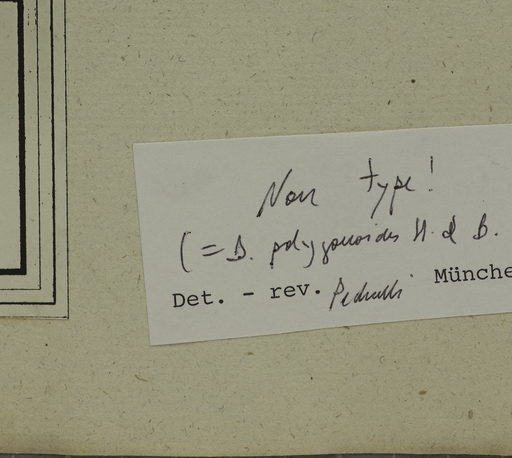 Non type!
(= B. polygonoides H. & B.
Det. - rev. Pedralli Münche